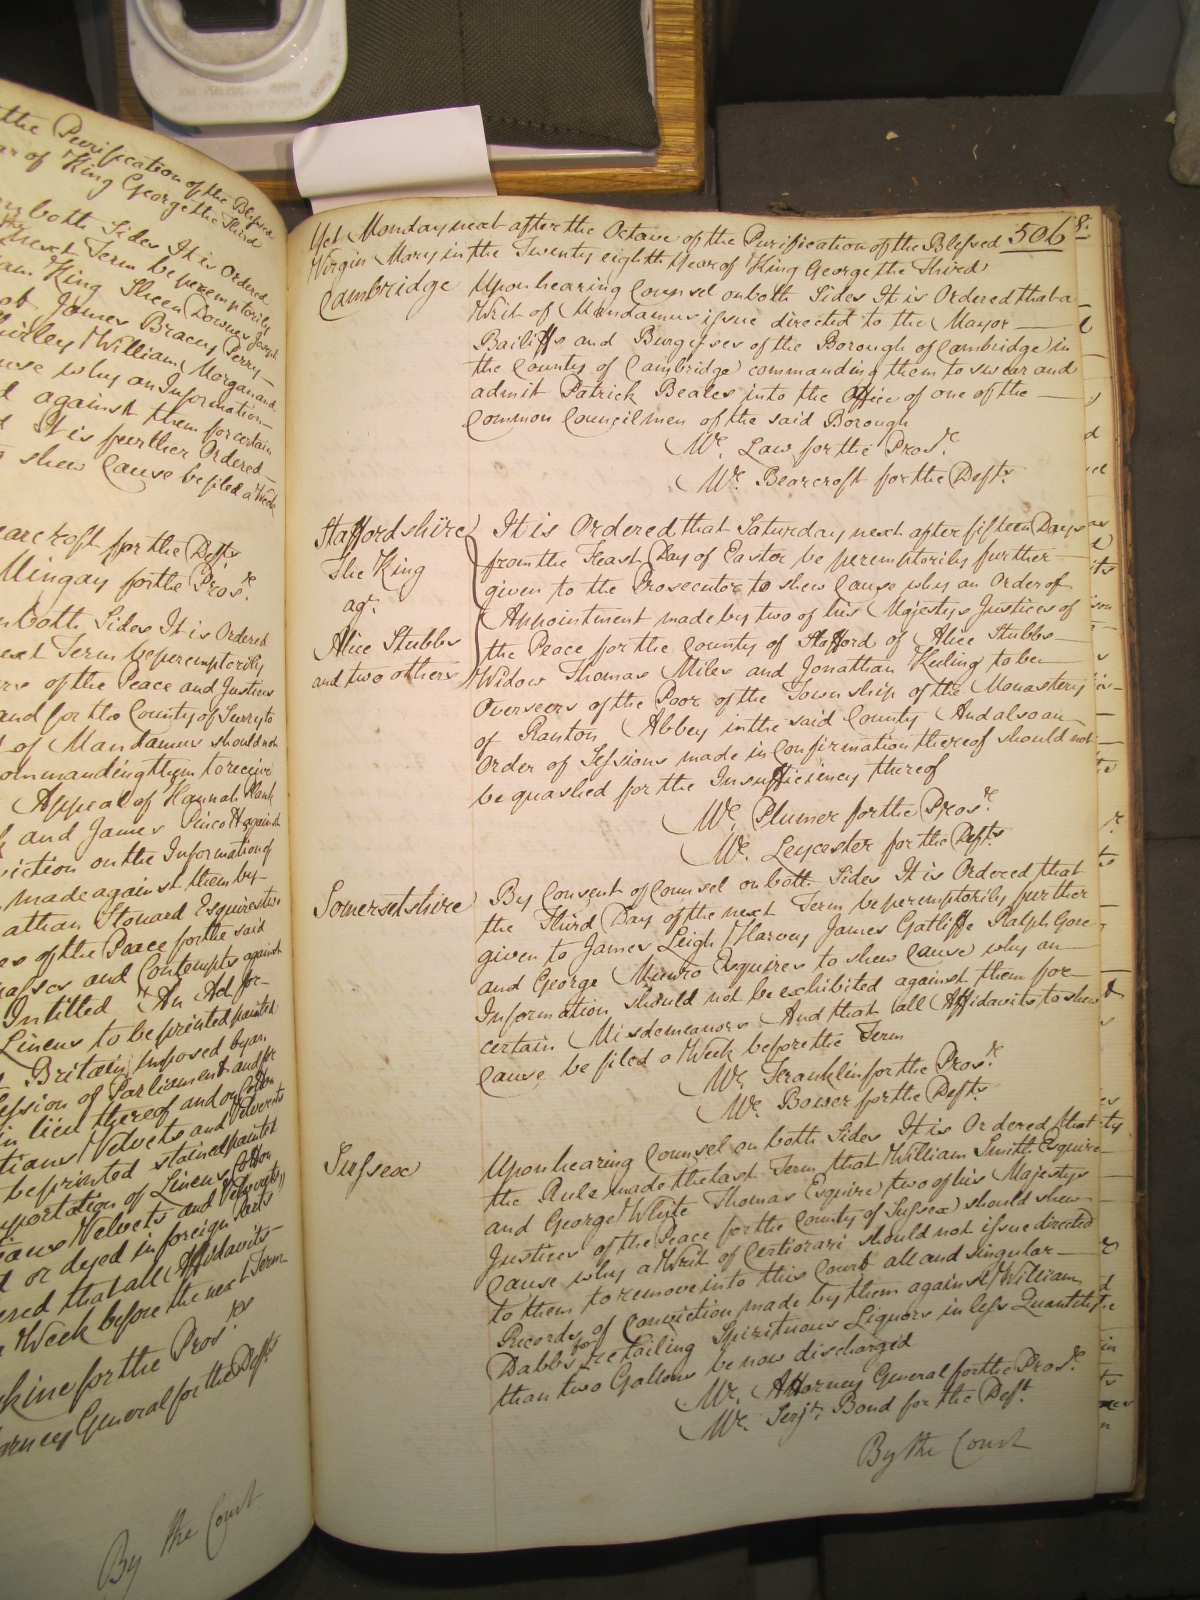 the Purification of the Blessed
of King George the Third
both Sides It is Ordered
next Term be peremptorily
King Sheen Downes Joseph
James Bracey Perry
William Morgan and
why an Information
against them for certain
It is further Ordered
shew Cause be filed a Week
for the Defts
Mingay for the Pros.r
both Sides It is Ordered
Term be peremptorily
of the Peace and Justices
and for the County of Surry to
of Mandamus should not
commanding them to receive
Appeal of Hannah
and James against
on the Information of
made against them by
Stonard Esquires two
of the Peace for the said
and Contempts against
Intitled "An Act for
Linens to be printed painted
Britain, imposed by an
of Parliament and for
in lieu thereof and on Cotton
Velvets and Velverets
be printed stained painted
of Linens Cotton
Velvets and Velverets
or dyed in foreign Parts "
that all Affidavits
Week before the next Term
for the Pros.rs
General for the Defts
By the Court
Yet Monday next after the Octave of the Purification of the Blessed 506
Virgin Mary in the Twenty eighth Year of King George the Third
Cambridge Upon hearing Counsel on both Sides It is Ordered that a
Writ of Mandamus issue directed to the Mayor
Bailiffs and Burgesses of the Borough of Cambridge in
the County of Cambridge commanding them to swear and
admit Patrick Beales into the Office of one of the
Common Councilmen of the said Borough
Mr. Law for the Pros.r
Mr. Bearcroft for the Defts.
Staffordshire It is Ordered that Saturday next after fifteen Days
The King from the Feast Day of Easter be peremptorily further
agt. given to the Prosecutor to shew Cause why an Order of
Alice Stubbs Appointment made by two of his Majestys Justices of
and two others the Peace for the County of Stafford of Alice Stubbs
Widow Thomas Miles and Jonathan Keeling to be
Overseers of the Poor of the Township of the Monastery
of Ranton Abbey in the said County And also an
Order of Sessions made in Confirmation thereof should not
be quashed for the Insufficiency thereof
Mr. Plumer for the Pros.r
Mr. Leycester for the Defts.
Somersetshire By Consent of Counsel on both Sides It is Ordered that
the Third Day of the next Term be peremptorily further
given to James Leigh Harvey James Gatliffe Ralph Gore
and George Munro Esquires to shew Cause why an
Information should not be exhibited against them for
certain Misdemeanors And that all Affidavits to shew
Cause be filed a Week before the Term
Mr. Franklin for the Pros.r
Mr. Bower for the Defts.
Sussex Upon hearing Counsel on both Sides It is Ordered that
the Rule made the last Term that William Smith Esquire
and George White Thomas Esquire two of his Majestys
Justices of the Peace for the County of Sussex should shew
Cause why a Writ of Certiorari should not issue directed
to them to remove into this Court all and singular
Records of Conviction made by them against William
Dabbs for retailing Spirituous Liquors in less Quantity
than two Gallons be now discharged
Mr. Attorney General for the Pros.r
Mr. Serjt. Bond for the Deft.
By the Court